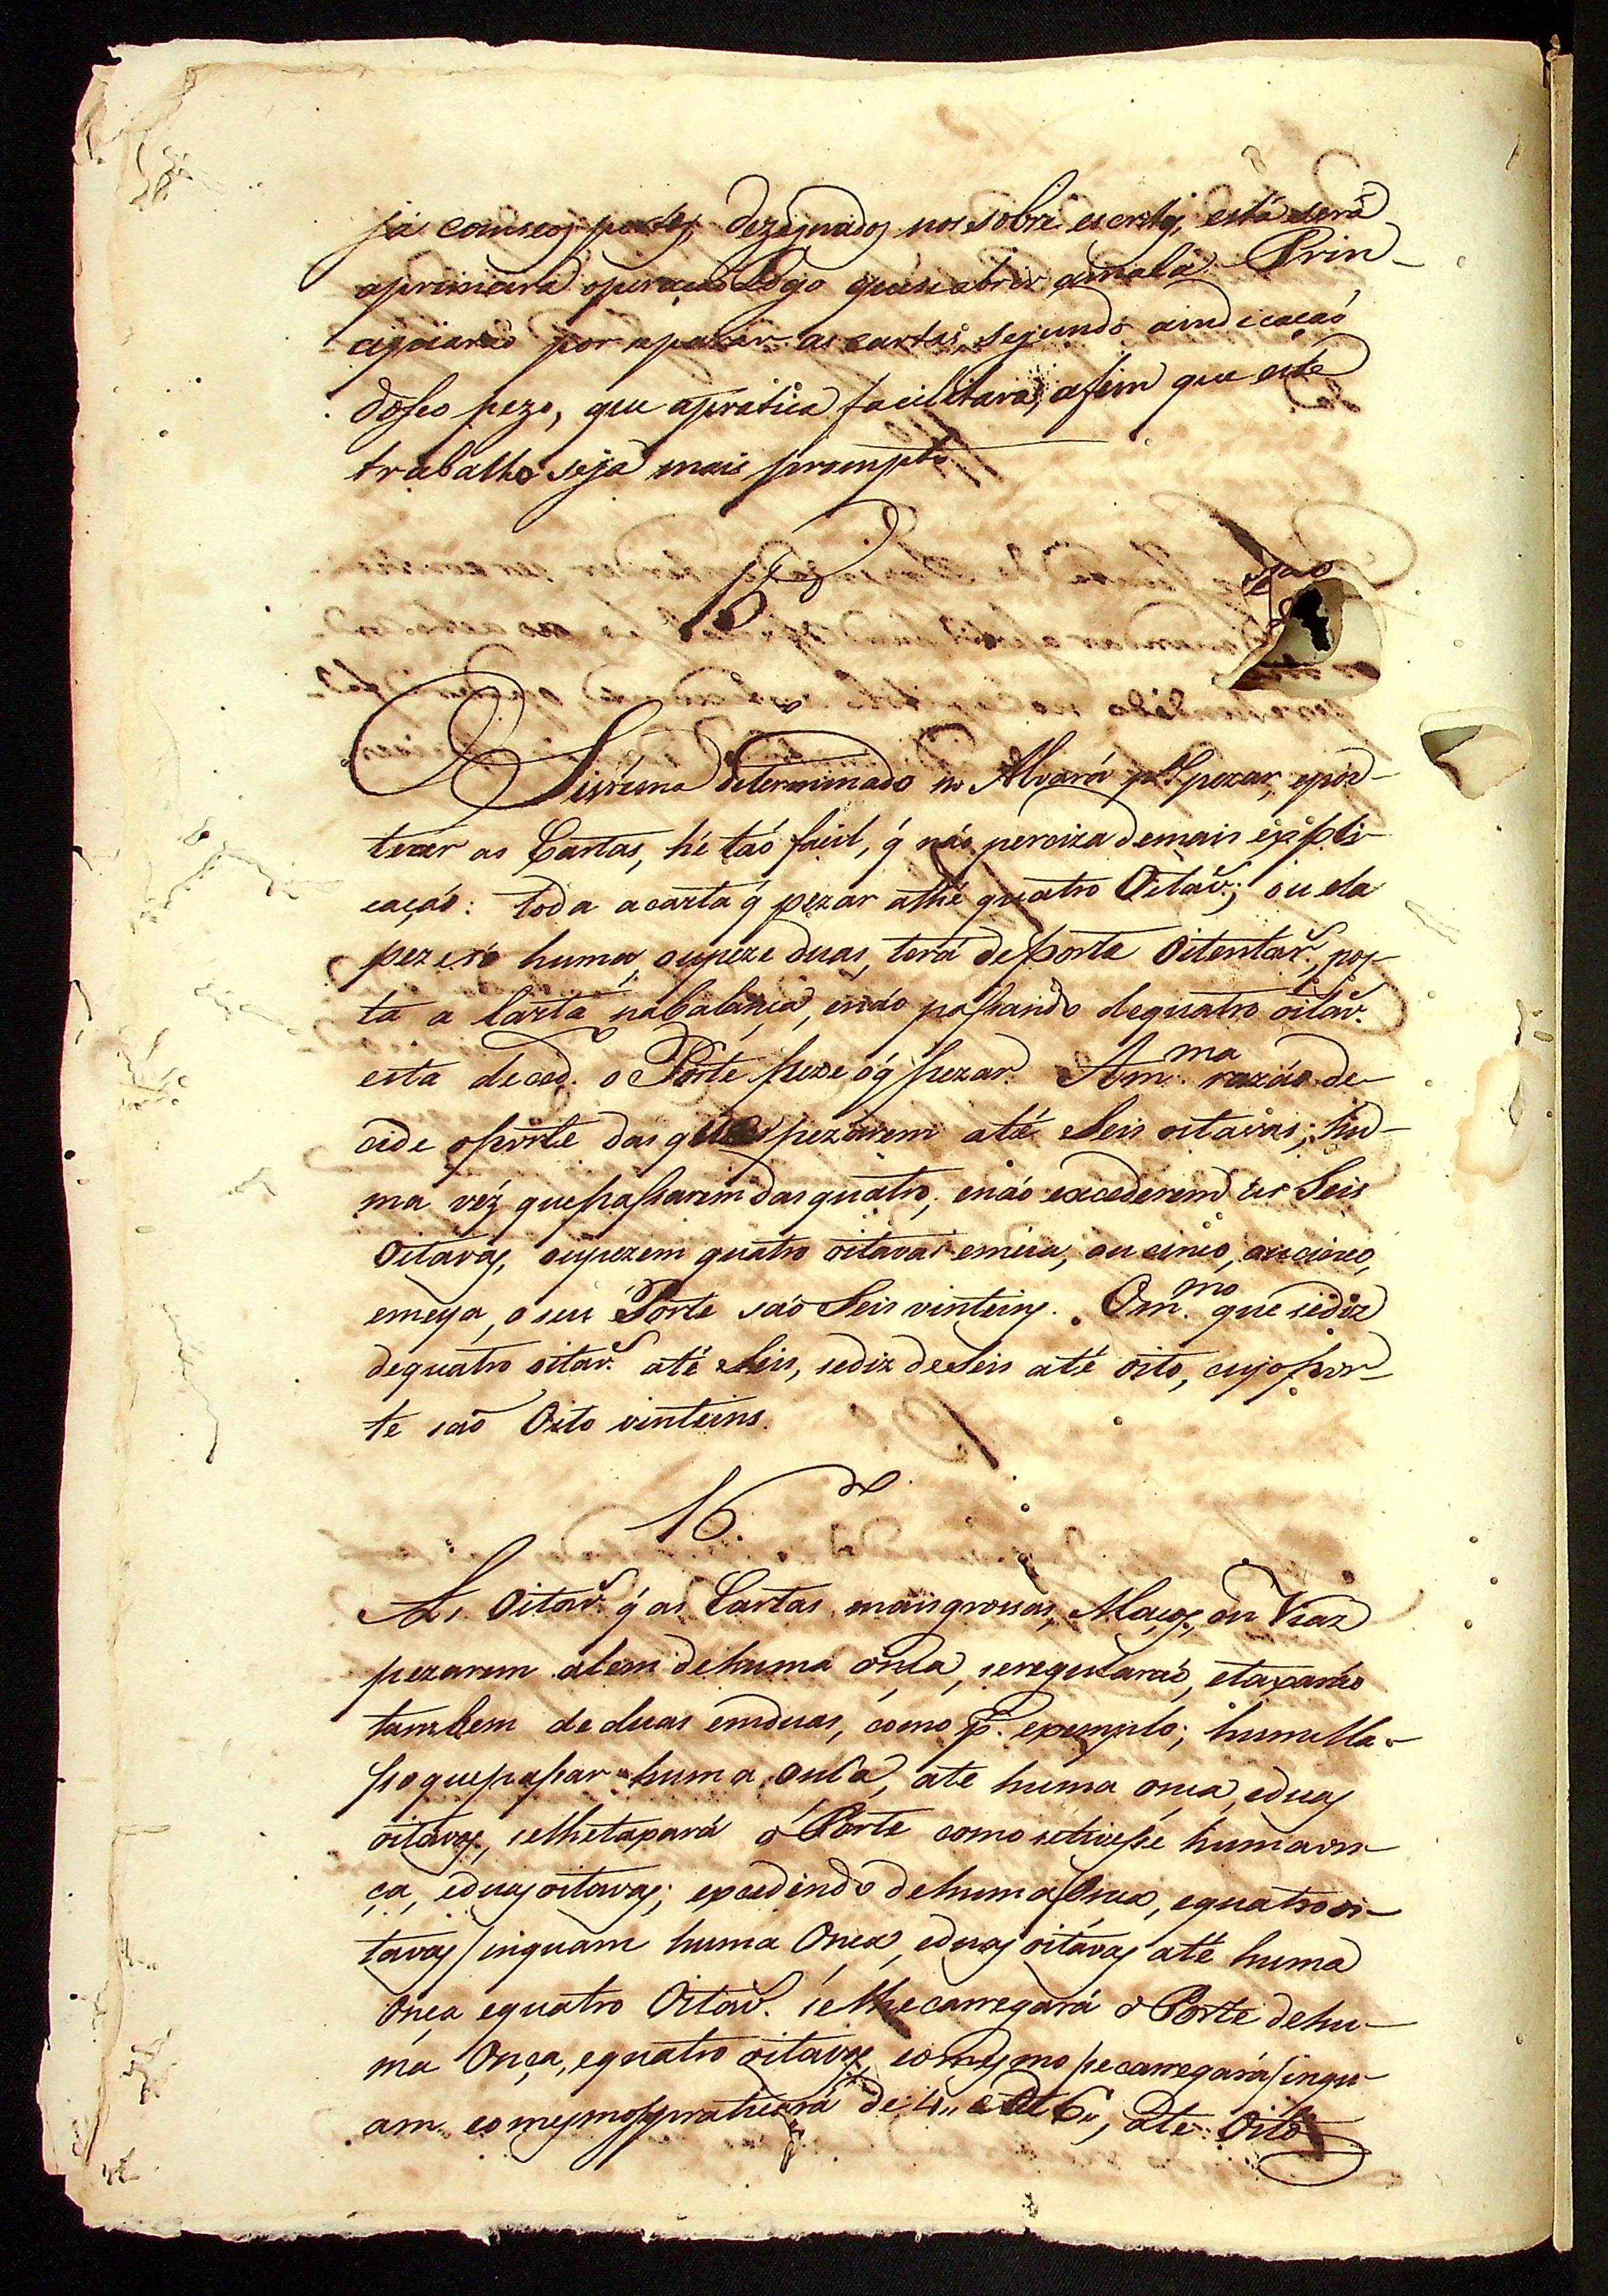 já com seos portes dezignados nos sobre escritos, esta será
aprimeira operaçaõ Logo quese abrir amala. Prin-
cipiaraõ por apartar as cartas segundo aindicaçaõ
doseo pezo, que apratica facilitará, afim que este
trabalho seja mais prompto
15.
O Sistema determinado no Alvará pª pezar, epor-
tear as Cartas, hé taó facil, q̃ náo perciza demais expli-
caçaó: toda acarta q̃ pezar athé quatro Oitavˢ; ou ela
peze só huma, oupeze duas, terá deporte Oitentarˢ, pos-
ta a Carta nabalança, enáo passando dequatro oitavˢ.
esta decid. o Porte peze óq̃ pezar. Am.ma razáo de-
cide oporte das que pezarem até Seis oitavas; hu-
ma véz quepassarem das quatro, enáo excederem as Seis
Oitavas, oupezem quatro oitavas emeia, ou cinco, ou cinco,
emeya, o seu Porte saó Seis vinteins. Om.mo que sediz
dequatro oitavˢ até Seis, sediz deSeis até oito, cujopor-
te saó Oito vinteins.
16.
As Oitavˢ q̃ as Cartas maisgrossas, Maços, ou Vias
pezarem alem dehuma onça, seregularáó, etaxaráo
tambem de duas emduas, como p.r exemplo; humMa-
sso quepasar huma onça, ate huma onca, eduas
oitavas, selhetaxará o Porte como setivesse humaon-
ça, eduas oitavas; excedendo dehuma Onca, equatrooi-
tavas/inquam huma Onca, eduas oitavas até huma
Onça equatro Oitavˢ. selhecarregará o Porte dehu-
ma Onça, equatro oitavas, eomesmo secarregará/inqu-
am eomesmosepraticará de 4,, a 6,, ate Oito